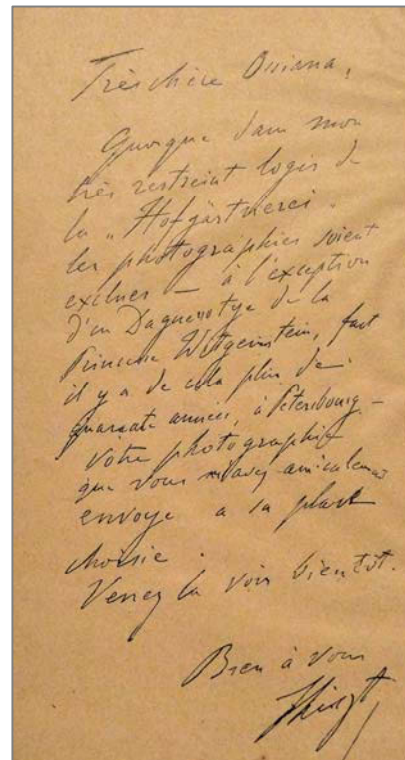 Très chère Ossiana,
Quoique dans mon
très restreint logis de
la „Hofgärtnerei"
les photographies soient
exclues — à l'exception
d'un Daguerotype de la
Princesse Wittgenstein, fait
il y a de cela plus de
quarante années, à Petersbourg —
Votre photographie
que vous m'avez amicalement
envoyé a sa place
choisie.
Venez la voir bientôt.
Bien à vous
FLiszt